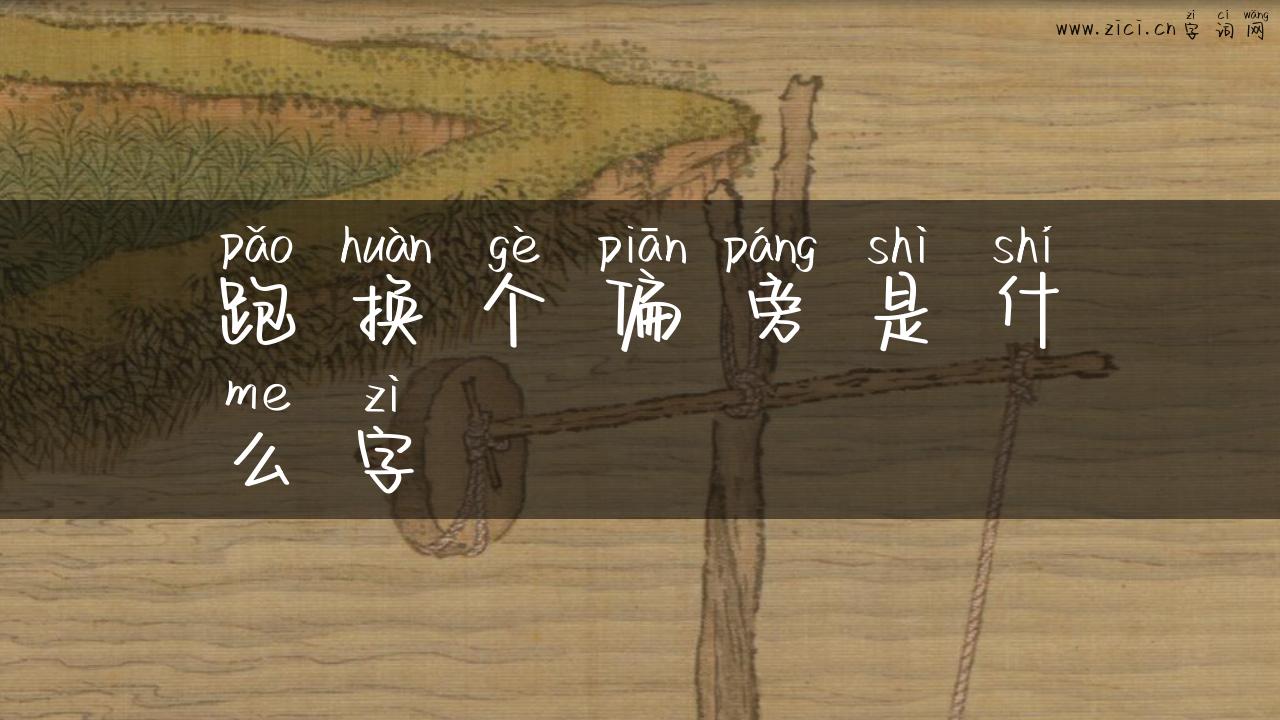 zì cí wǎng
www.zici.cn 字 词 网
pǎo huàn gè piān páng shì shí
跑 换 个 偏 旁 是 什
me zì
么 字